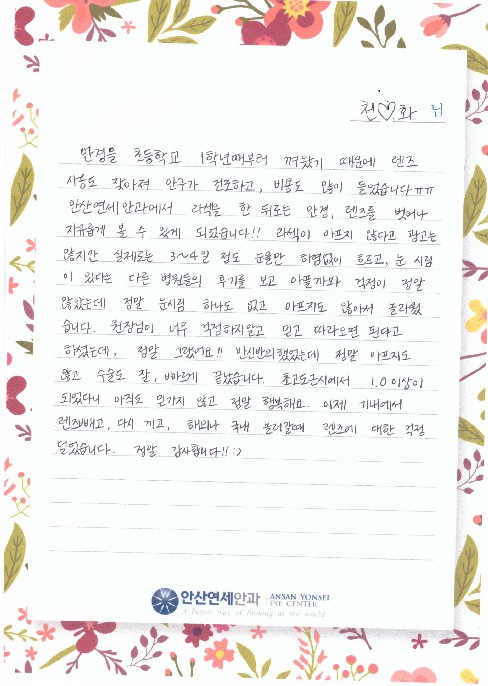 천♡화 님
안경을 초등학교 1학년때부터 껴왔기 때문에 렌즈
사용도 잦아져 안구가 건조하고, 비용도 많이 들었습니다ㅠㅠ
안산연세안과에서 라섹을 한 뒤로는 안경, 렌즈를 벗어나
자유롭게 볼 수 있게 되었습니다!! 라섹이 아프지 않다고 광고는
많지만 실제로는 3~4일 정도 눈물만 하염없이 흐르고, 눈 시림
이 있다는 다른 병원들의 후기를 보고 아플까봐 걱정이 정말
많았는데 정말 눈시림 하나도 없고 아프지도 않아서 놀라웠
습니다. 원장님이 너무 걱정하지말고 믿고 따라오면 된다고
하셨는데, 정말 그랬어요!! 반신반의했었는데 정말 아프지도
않고 수술도 잘, 빠르게 끝났습니다. 초고도근시에서 1.0 이상이
되었다니 아직도 믿기지 않고 정말 행복해요. 이제 기내에서
렌즈빼고, 다시 끼고, 해외나 국내 놀러갈때 렌즈에 대한 걱정
덜었습니다. 정말 감사합니다!! :)
안산연세안과 ANSAN YONSEI EYE CENTER
A better way of looking at the world